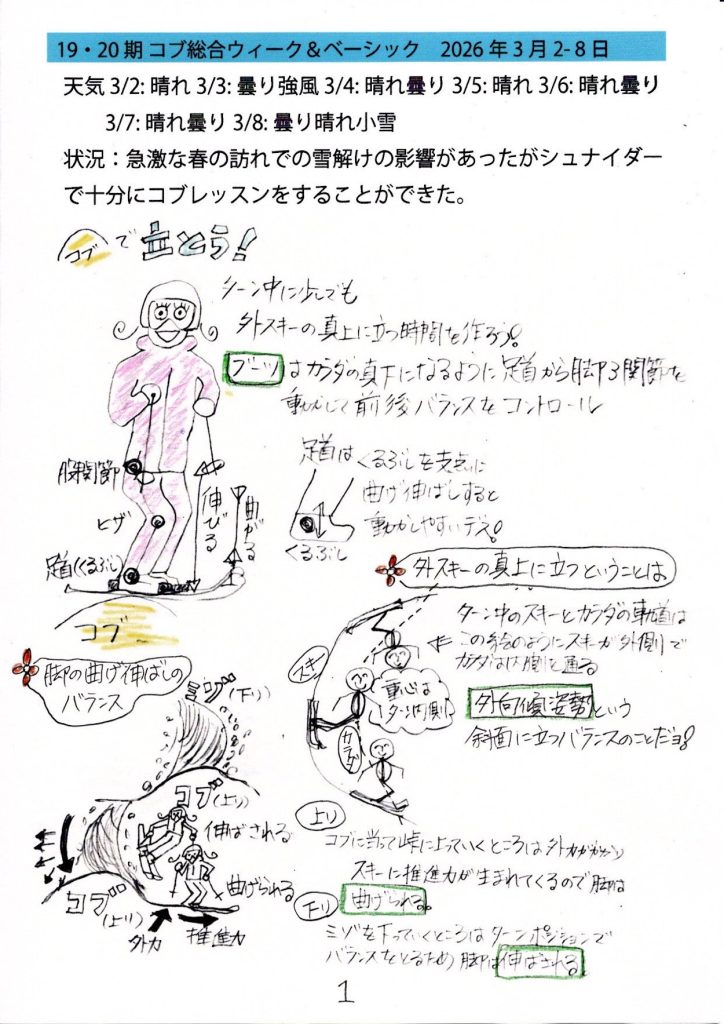 19・20期 コブ総合ウィーク＆ベーシック　2026年3月2-8日
天気 3/2: 晴れ 3/3: 曇り強風 3/4: 晴れ曇り 3/5: 晴れ 3/6: 晴れ曇り
3/7: 晴れ曇り 3/8: 曇り晴れ小雪
状況：急激な春の訪れでの雪解けの影響があったがシュナイダー
で十分にコブレッスンをすることができた。
コブで立とう!
ターン中に少しでも
外スキーの真上に立つ時間を作ろう!
ブーツはカラダの真下になるように足首から脚3関節を
動かして前後バランスをコントロール
股関節
ヒザ
足首(くるぶし)
伸びる
曲がる
コブ
足首はくるぶしを支点に
曲げ伸ばしすると
動かしやすいデス!
くるぶし
外スキーの真上に立つということは
ターン中のスキーとカラダの軌道は
この絵のようにスキーが外側で
カラダは内側を通る
外向傾姿勢という
斜面に立つバランスのことだヨ!
スキー
重心は
1ターン内側
カラダ
脚の曲げ伸ばしの
バランス
ミゾ(下り)
コブ(上り)
伸ばされる
曲げられる
コブ(上り)
外力
推進力
上り
コブに当って峠に上っていくところは外力がかかり
スキーに推進力が生まれてくるので脚は
曲げられる。
下り
ミゾを下っていくところはターンポジションで
バランスをとるため脚は伸ばされる
1